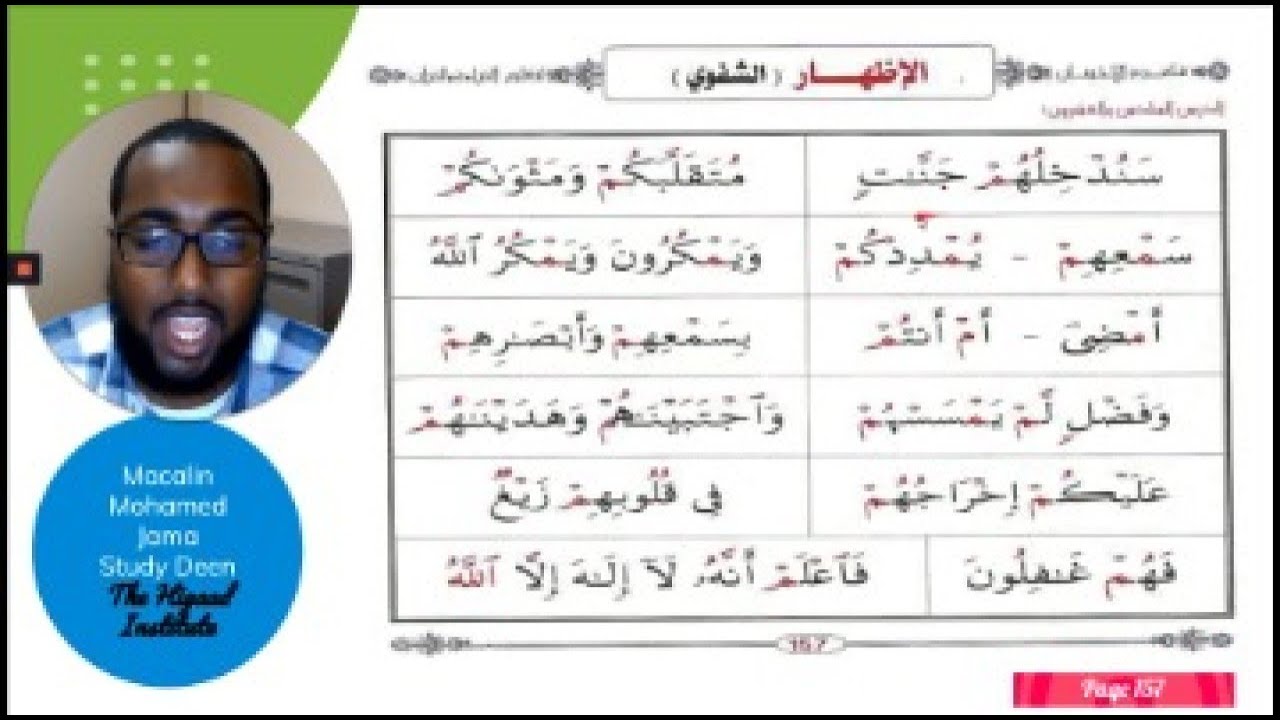 الإظهار (الشفوي)
سَنُدْخِلُهُمْ جَنَّٰتٍ
مُتَقَلَّبَكُمْ وَمَثْوَىٰكُمْ
سَمْعِهِمْ - يُمْدِدْكُمْ
وَيَمْكُرُونَ وَيَمْكُرُ ٱللَّهُ
أَمْضِىَ - أَمْ أَنتُمْ
بِسَمْعِهِمْ وَأَبْصَٰرِهِمْ
وَفَضْلٍ لَّمْ يَمْسَسْهُمْ
وَٱجْتَبَيْنَٰهُمْ وَهَدَيْنَٰهُمْ
عَلَيْكُمْ إِخْرَاجُهُمْ
فِى قُلُوبِهِمْ زَيْغٌ
فَهُمْ غَٰفِلُونَ
فَٱعْلَمْ أَنَّهُۥ لَآ إِلَٰهَ إِلَّا ٱللَّهُ
157
Page 157
Macalin
Mohamed
Jama
Study Deen
The Higaad
Institute